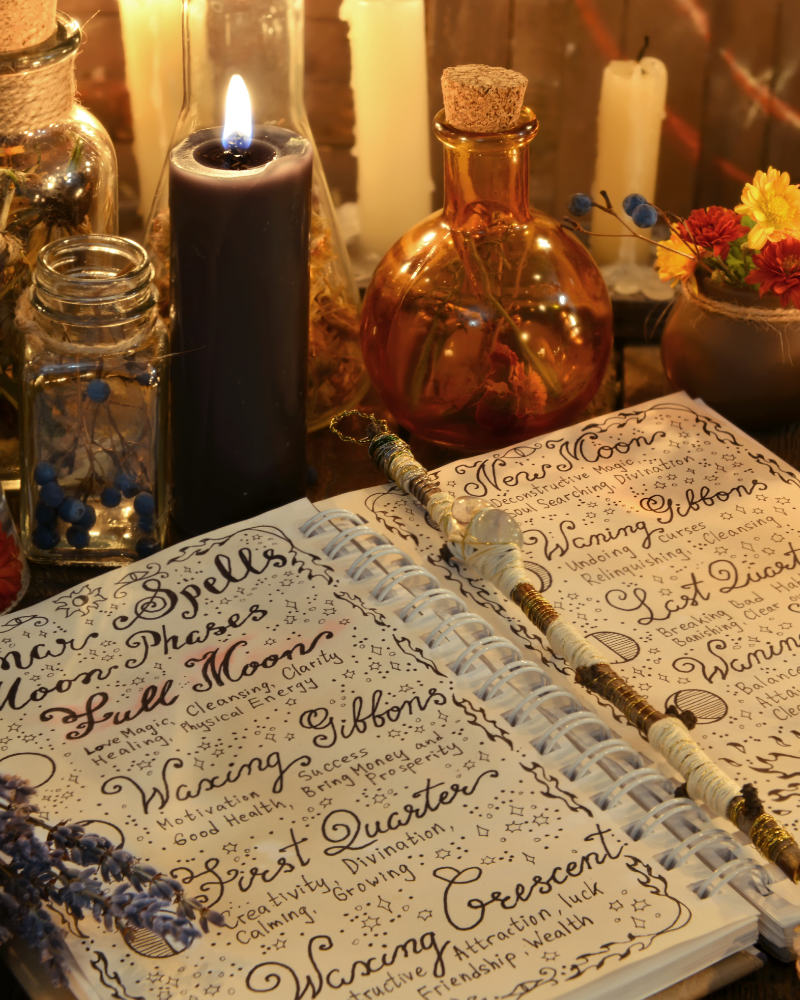 Spells
Moon Phases
Full Moon
Love Magic, Cleansing, Clarity
Healing, Physical Energy
Waxing Gibbons
Motivation Success
Good Health, Bring Money and
Prosperity
First Quarter
Creativity, Divination,
Calming, Growing
Waxing Crescent
Attraction, luck
Friendship, Wealth
New Moon
Deconstructive Magic,
Soul Searching, Divination
Waning Gibbons
Undoing Curses
Relinquishing, Cleansing
Last
Breaking Bad
Banishing, Clear
Waning